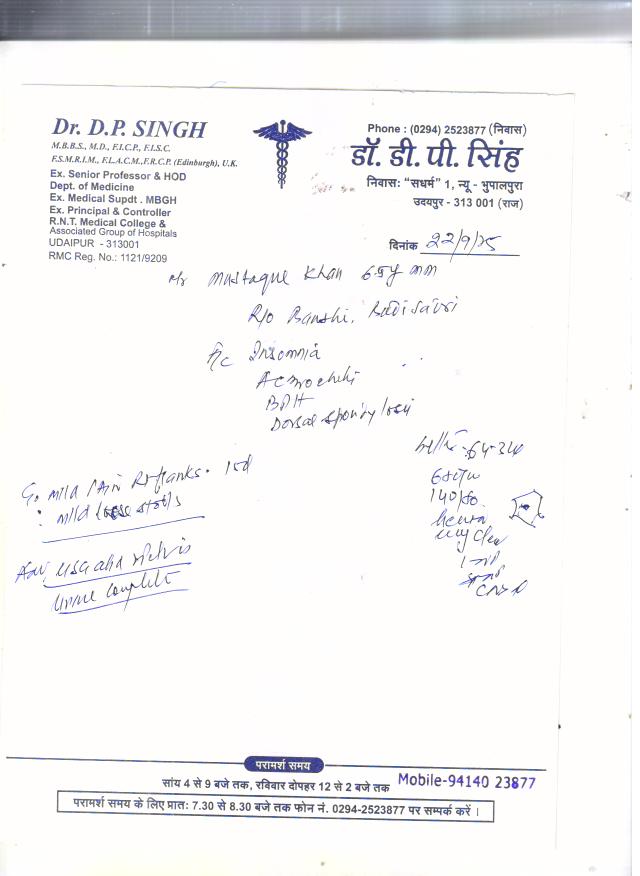 Dr. D.P. SINGH
M.B.B.S., M.D., F.I.C.P., F.I.S.C.
F.S.M.R.I.M., F.I.A.C.M., F.R.C.P. (Edinburgh), U.K.
Ex. Senior Professor & HOD
Dept. of Medicine
Ex. Medical Supdt. MBGH
Ex. Principal & Controller
R.N.T. Medical College &
Associated Group of Hospitals
UDAIPUR - 313001
RMC Reg. No.: 1121/9209
Phone : (0294) 2523877 (निवास)
डॉ. डी. पी. सिंह
निवास: "सधर्म" 1, न्यू - भुपालपुरा
उदयपुर - 313 001 (राज)
दिनांक 22/9/25
Mr Mustaque Khan 65y
R/o Banshi,
Insomnia
BPH
Dorsal spondylosis
Mild Pain Rt flanks
mild loose stools
Adv, USG abd Pelvis
Urine Complete
140/80
परामर्श समय
सांय 4 से 9 बजे तक, रविवार दोपहर 12 से 2 बजे तक Mobile-94140 23877
परामर्श समय के लिए प्रात: 7.30 से 8.30 बजे तक फोन नं. 0294-2523877 पर सम्पर्क करें ।